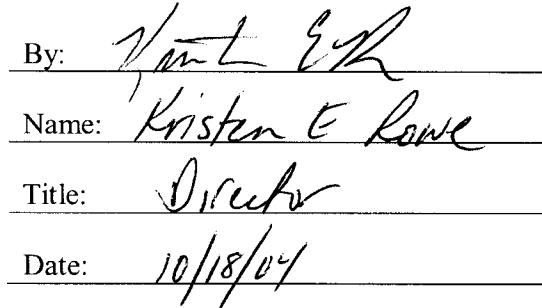 By:
Name: Kristen E Rowe
Title: Director
Date: 10/18/04